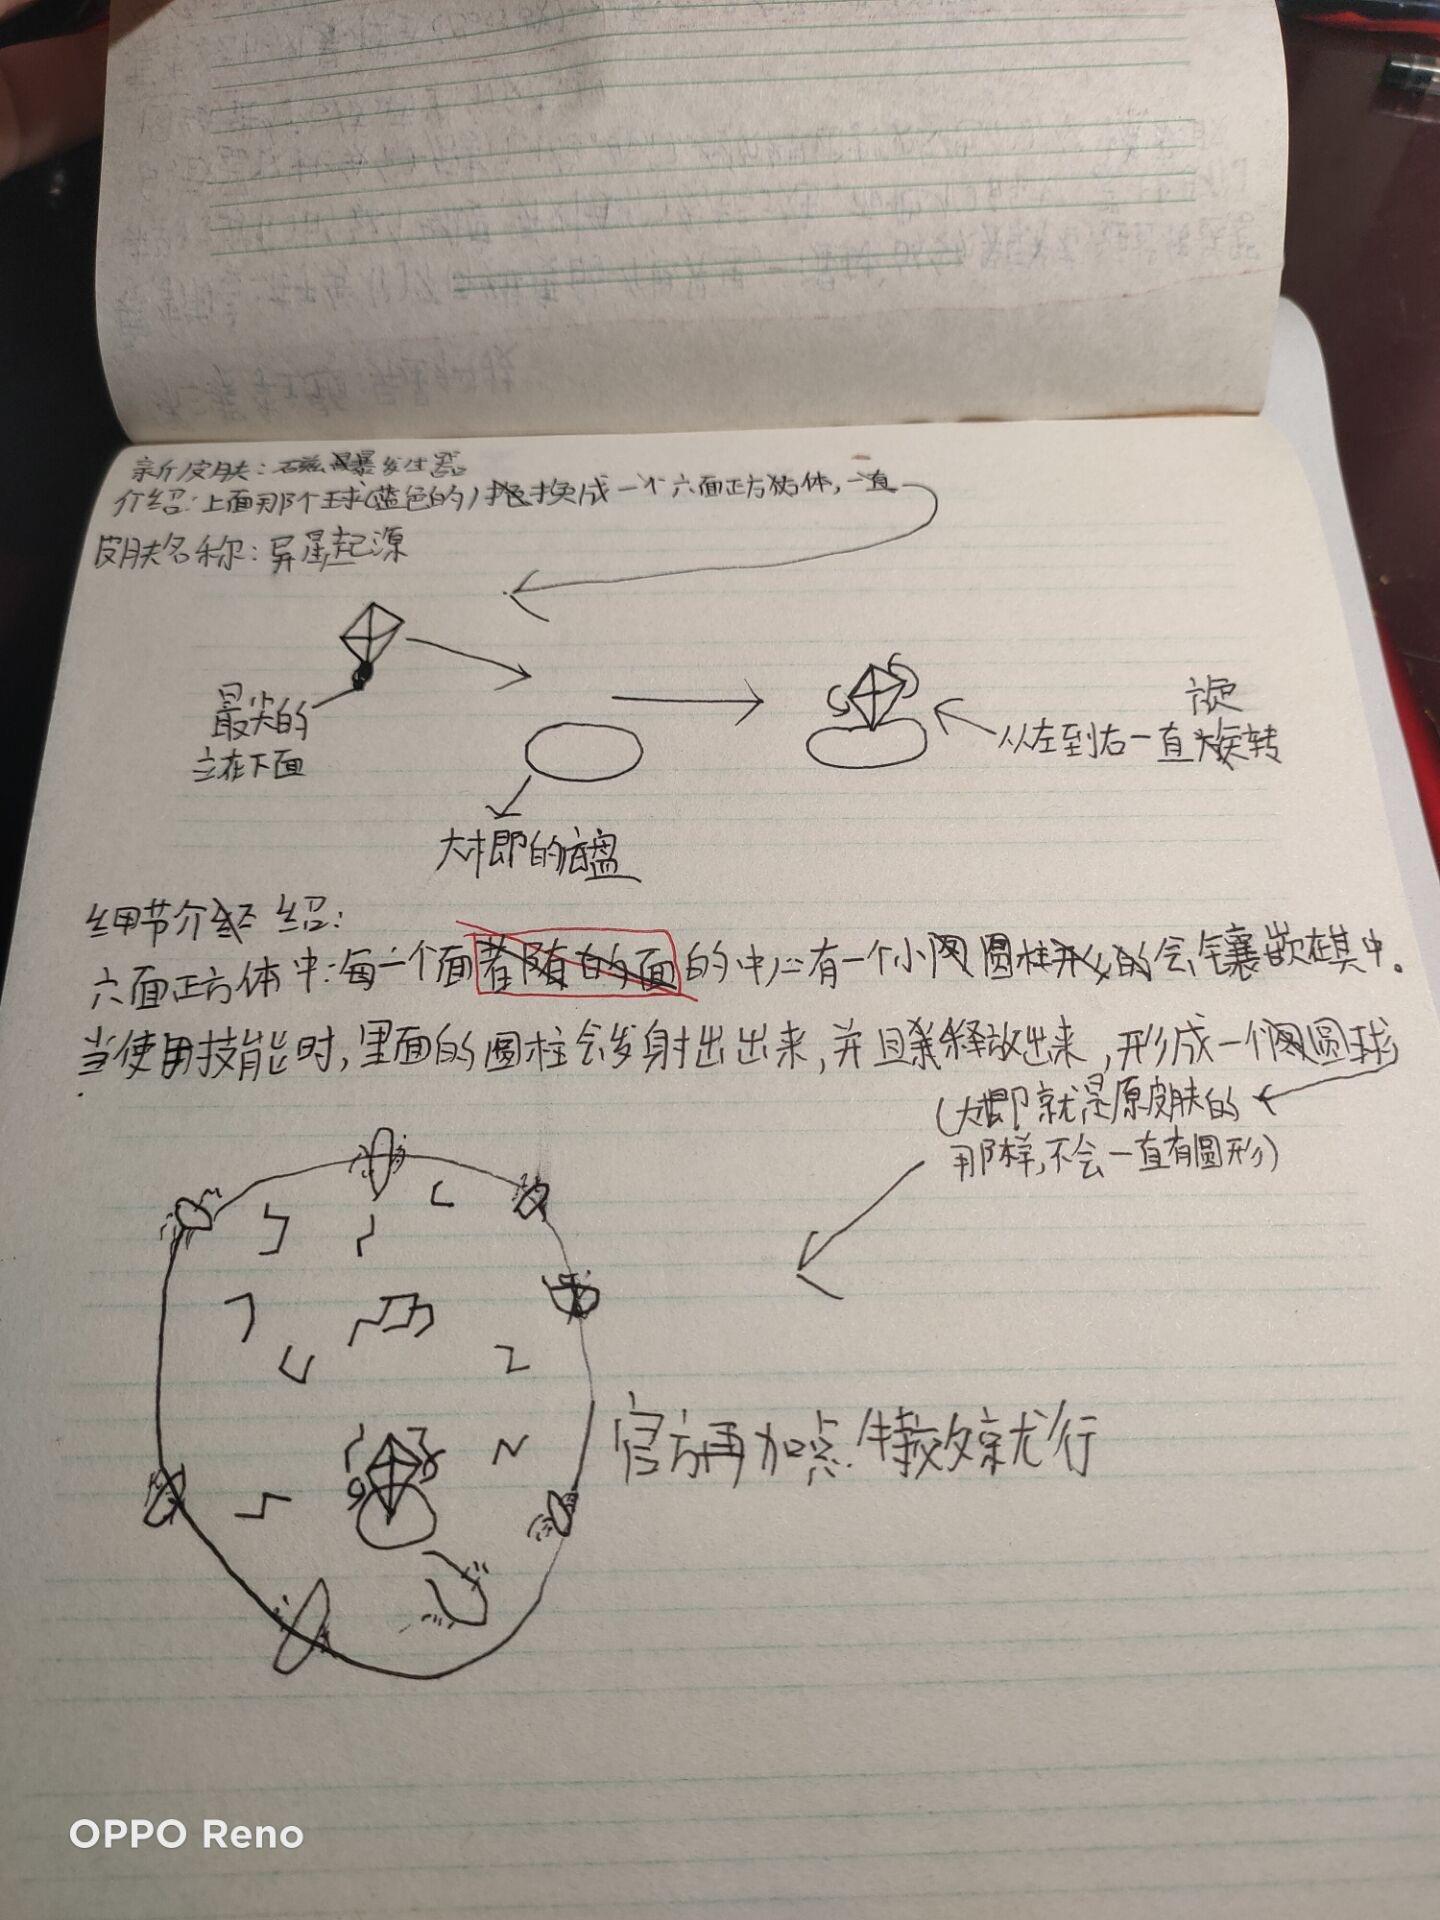 新皮肤:磁暴发生器
介绍:上面那个球(蓝色的)换成一个六面正方体,一直
皮肤名称:异星起源
最尖的
立在下面
旋
从左到右一直旋转
大概的底盘
细节介绍:
六面正方体中:每一个面的中心有一个小圆柱形的会镶嵌在其中。
当使用技能时,里面的圆柱会发射出出来,并且释放出来,形成一个圆球
(大概就是原皮肤的
那样,不会一直有圆形)
官方再加点特效就行
OPPO Reno